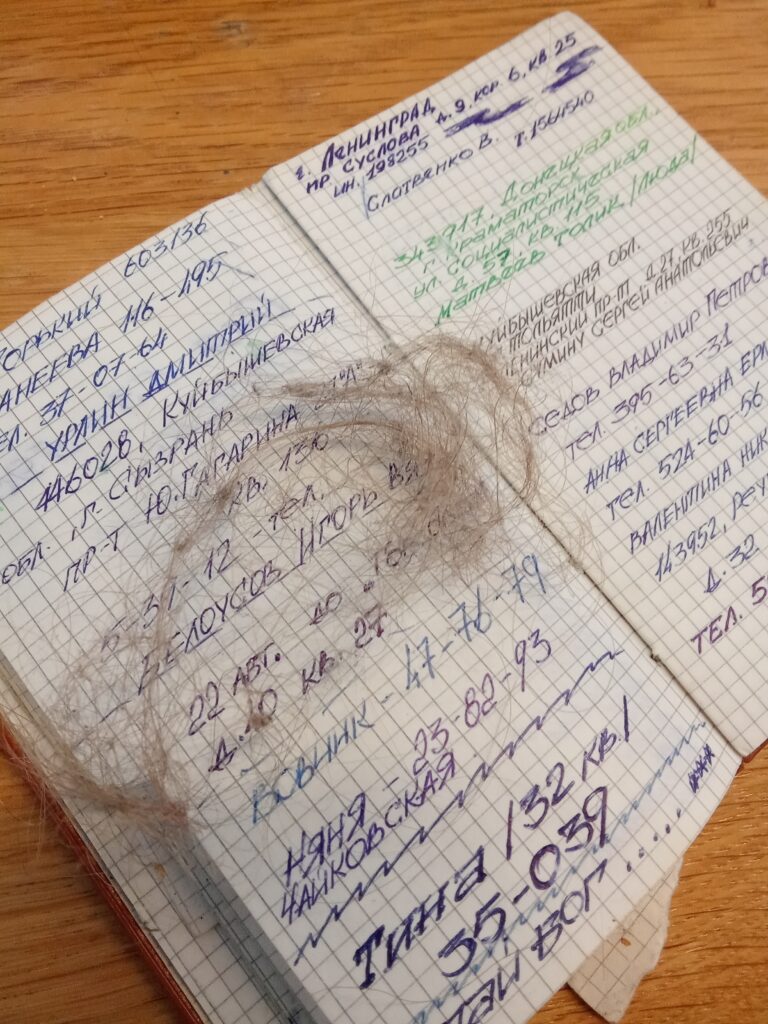 ГОРЬКИЙ 603136
116-195
37-07-64
УРЛИН ДМИТРИЙ
446028, КУЙБЫШЕВСКАЯ
ОБЛ., Г. СЫЗРАНЬ
ПР-Т Ю.ГАГАРИНА
КВ. 130
5-37-12 - ТЕЛ.
БЕЛОУСОВ ИГОРЬ
22 АВТ. ДО
Д.40 КВ. 27
ВОВЧИК - 47-76-79
НЯНЯ - 23-82-93
ЧАЙКОВСКАЯ
Тина /32 КВ./
35-039
г. ЛЕНИНГРАД
ПР. СУСЛОВА Д. 9, КОР. 6, КВ. 25
ИН. 198255
СЛОТВЕНКО В. Т. 1564540
343917, ДОНЕЦКАЯ ОБЛ.,
Г. КРАМАТОРСК
УЛ. СОЦИАЛИСТИЧЕСКАЯ
Д. 57, КВ. 115
МАТВЕЕВ ТОЛИК /ЛЮДА/
КУЙБЫШЕВСКАЯ ОБЛ.
ТОЛЬЯТТИ
ЛЕНИНСКИЙ ПР-Т Д. 27, КВ. 255
СЕРГЕЙ АНАТОЛЬЕВИЧ
СЕДОВ ВЛАДИМИР ПЕТРОВ
ТЕЛ. 395-63-31
АННА СЕРГЕЕВНА
ТЕЛ. 524-60-56
ВАЛЕНТИНА
143952, РЕУТ
Д. 32
ТЕЛ. 5